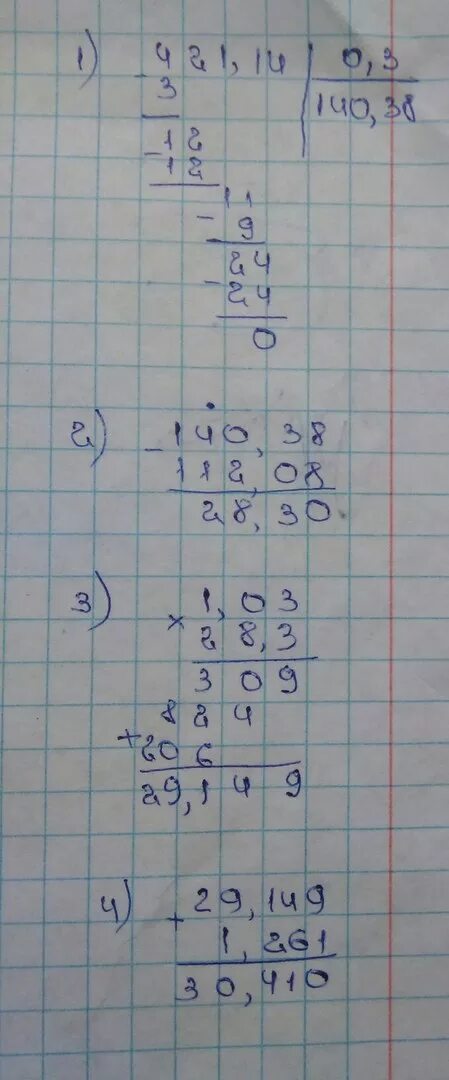 1) 421,14 | 0,3
- 3 | 140,38
12
- 12
11
- 9
24
- 24
0
2) - 140,38
112,08
28,30
3) × 1,03
28,3
309
824
+ 206
29,149
4) + 29,149
1,261
30,410